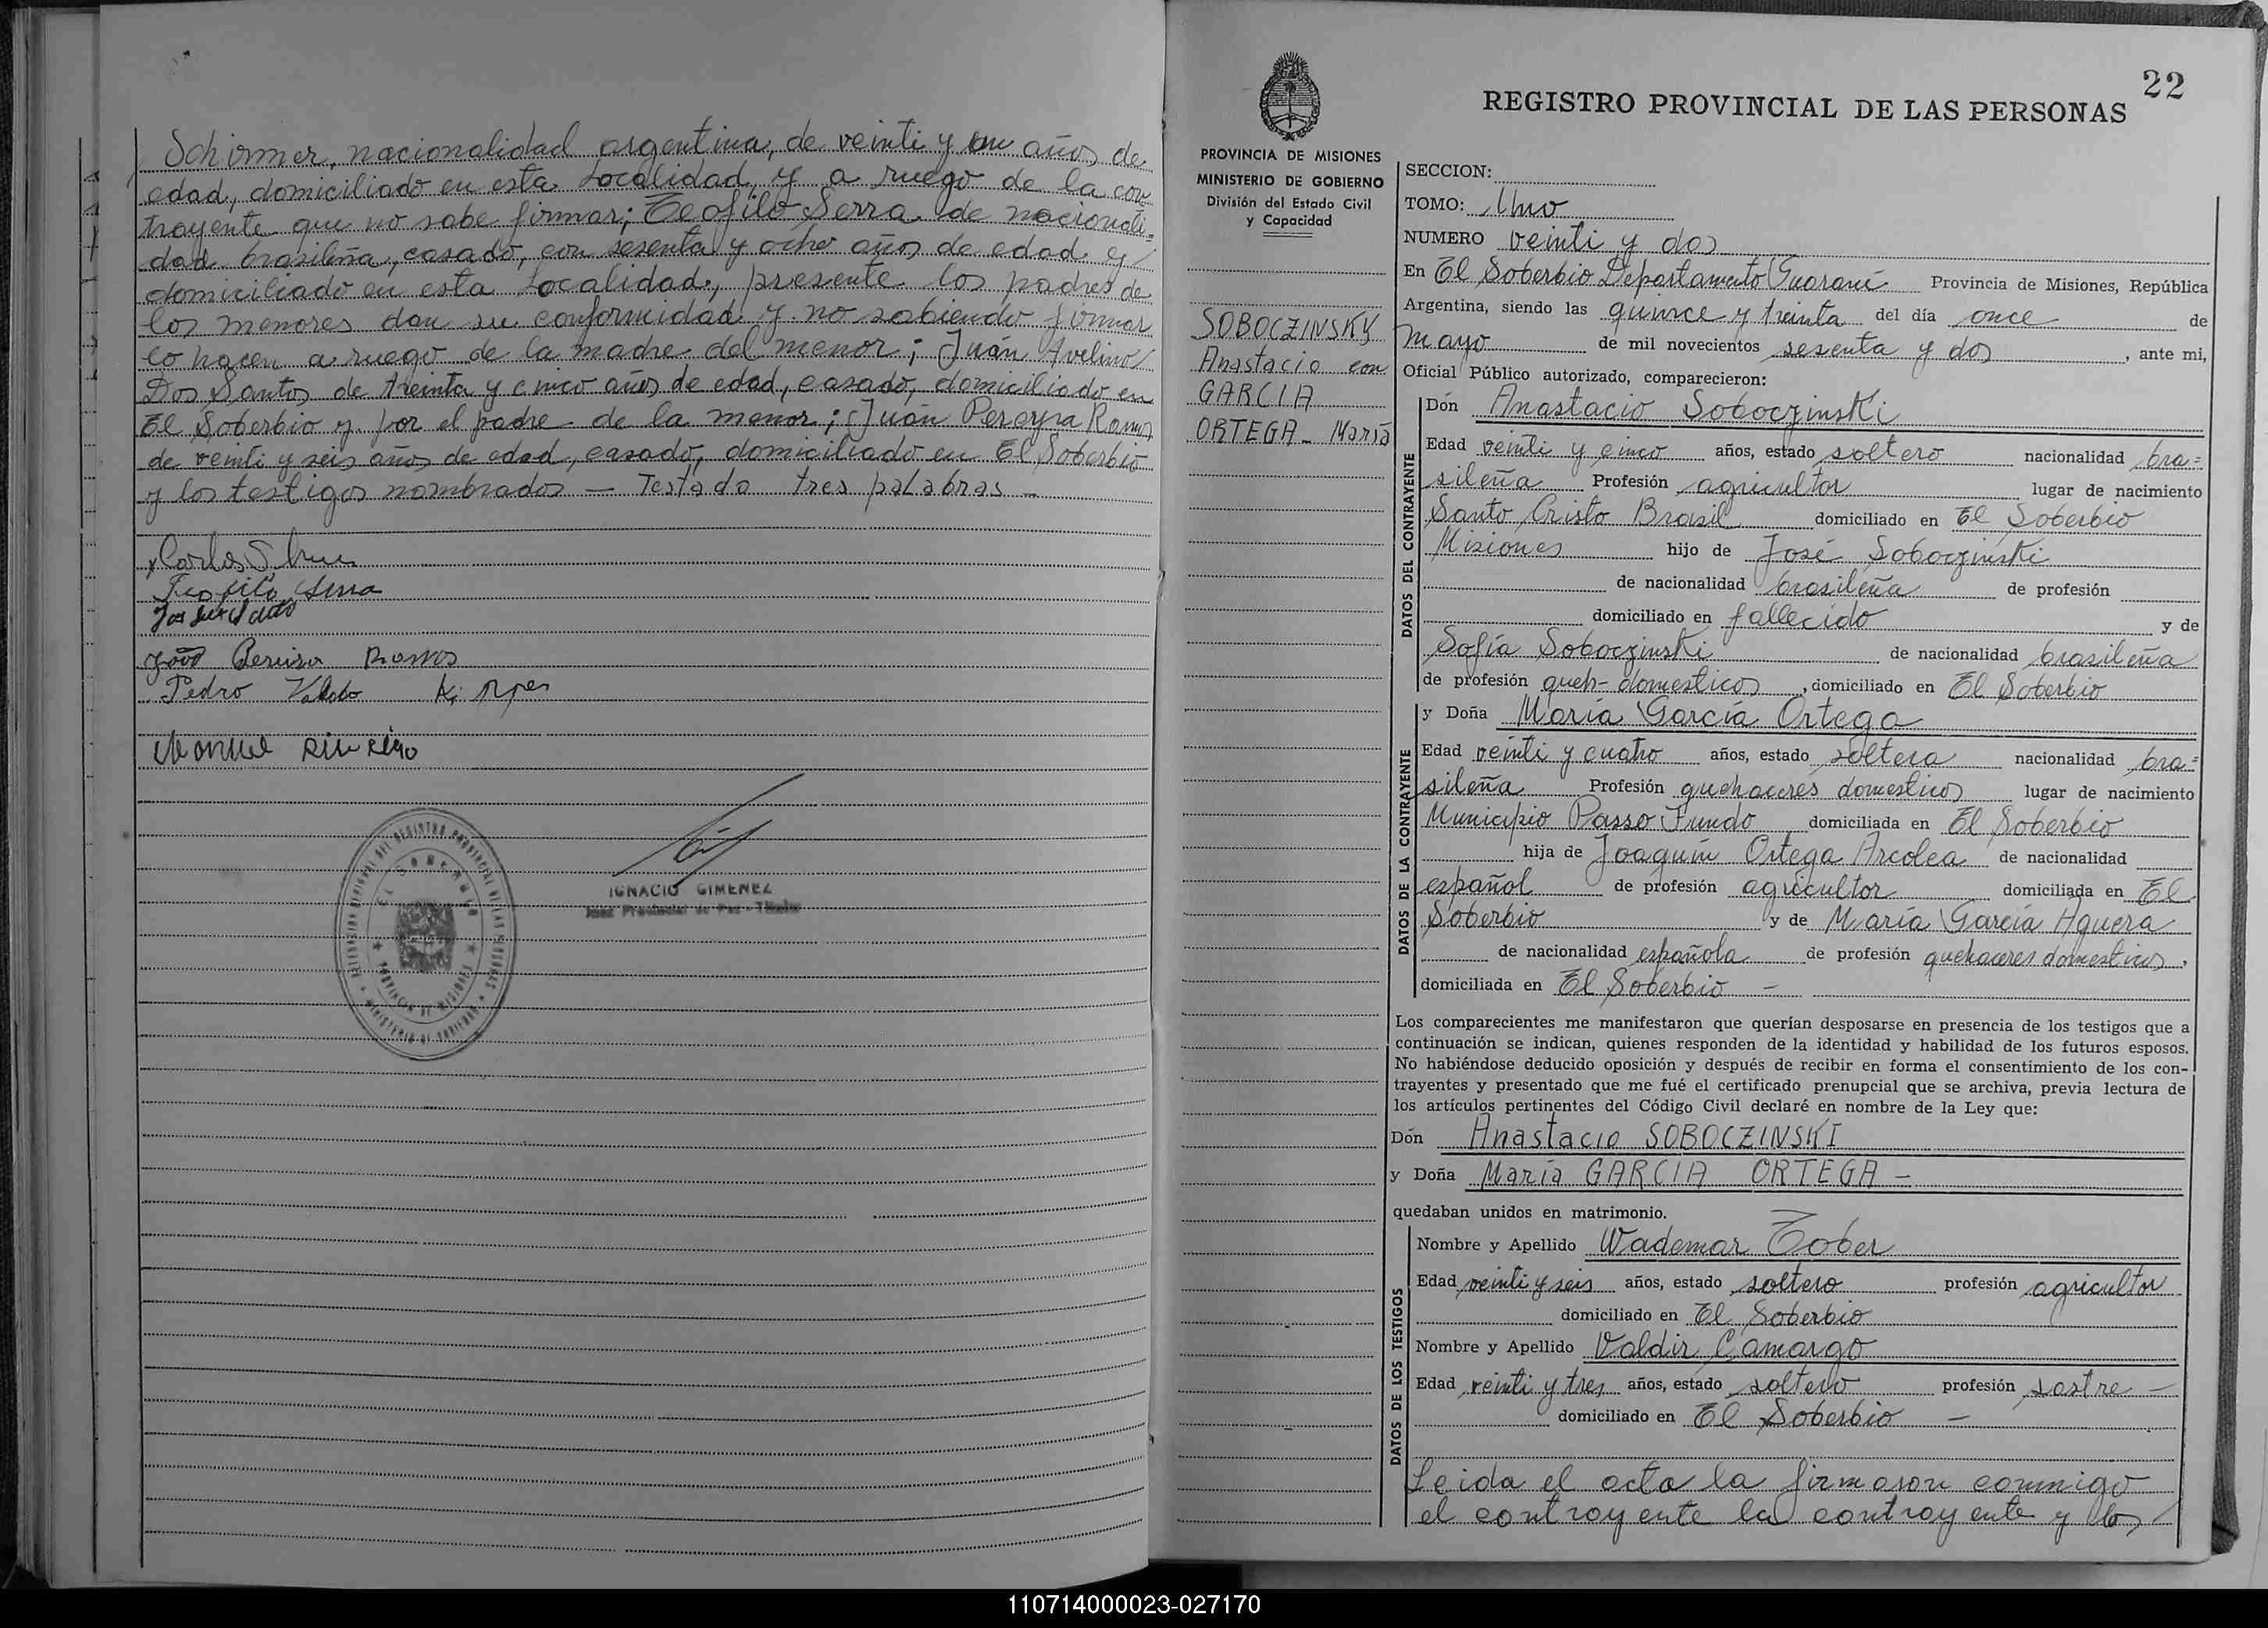 Schirmer, nacionalidad argentina, de veinti y un años de
edad, domiciliado en esta Localidad, y a ruego de la con
trayente que no sabe firmar; Teofilo Serra de nacionali=
dad brasileña, casado, con sesenta y ocho años de edad y
domiciliado en esta Localidad, presente los padres de
los menores dan su conformidad y no sabiendo firmar
lo hacen a ruego de la madre del menor; Juán Avelino
Dos Santos de treinta y cinco años de edad, casado, domiciliado en
El Soberbio y por el padre de la menor; Juán Pereyra Ramos
de veinti y seis años de edad, casado, domiciliado en El Soberbio
y los testigos nombrados — Testado tres palabras —
Carlos
Teofilo Serra
Pedro
Manuel
IGNACIO GIMENEZ
Juez Provincial de Paz - Titular
22
REGISTRO PROVINCIAL DE LAS PERSONAS
PROVINCIA DE MISIONES
MINISTERIO DE GOBIERNO
División del Estado Civil
y Capacidad
SOBOCZINSKY
Anastacio con
GARCIA
ORTEGA - María
SECCION:
TOMO: Uno
NUMERO veinti y dos
En El Soberbio Departamento Guaraní Provincia de Misiones, República
Argentina, siendo las quince y treinta del día once de
mayo de mil novecientos sesenta y dos, ante mi,
Oficial Público autorizado, comparecieron:
DATOS DEL CONTRAYENTE
Dón Anastacio Soboczinski
Edad veinti y cinco años, estado soltero nacionalidad bra=
sileña Profesión agricultor lugar de nacimiento
Santo Cristo Brasil domiciliado en El Soberbio
Misiones hijo de José Soboczinski
de nacionalidad brasileña de profesión
domiciliado en fallecido y de
Sofía Soboczinski de nacionalidad brasileña
de profesión queh-domesticos, domiciliado en El Soberbio
DATOS DE LA CONTRAYENTE
y Doña María García Ortega
Edad veinti y cuatro años, estado soltera nacionalidad bra=
sileña Profesión quehaceres domesticos lugar de nacimiento
Municipio Passo Fundo domiciliada en El Soberbio
hija de Joaquín Ortega Arcolea de nacionalidad
español de profesión agricultor domiciliada en El
Soberbio y de María García Aguera
de nacionalidad española de profesión quehaceres domesticos,
domiciliada en El Soberbio -
Los comparecientes me manifestaron que querían desposarse en presencia de los testigos que a
continuación se indican, quienes responden de la identidad y habilidad de los futuros esposos.
No habiéndose deducido oposición y después de recibir en forma el consentimiento de los con-
trayentes y presentado que me fué el certificado prenupcial que se archiva, previa lectura de
los artículos pertinentes del Código Civil declaré en nombre de la Ley que:
Dón Anastacio SOBOCZINSKI
y Doña María GARCIA ORTEGA -
quedaban unidos en matrimonio.
DATOS DE LOS TESTIGOS
Nombre y Apellido Wademar Tober
Edad veinti y seis años, estado soltero profesión agricultor
domiciliado en El Soberbio
Nombre y Apellido Valdir Camargo
Edad veinti y tres años, estado soltero profesión sastre -
domiciliado en El Soberbio -
Leida el acta la firmaron conmigo
el contrayente la contrayente y los
110714000023-027170